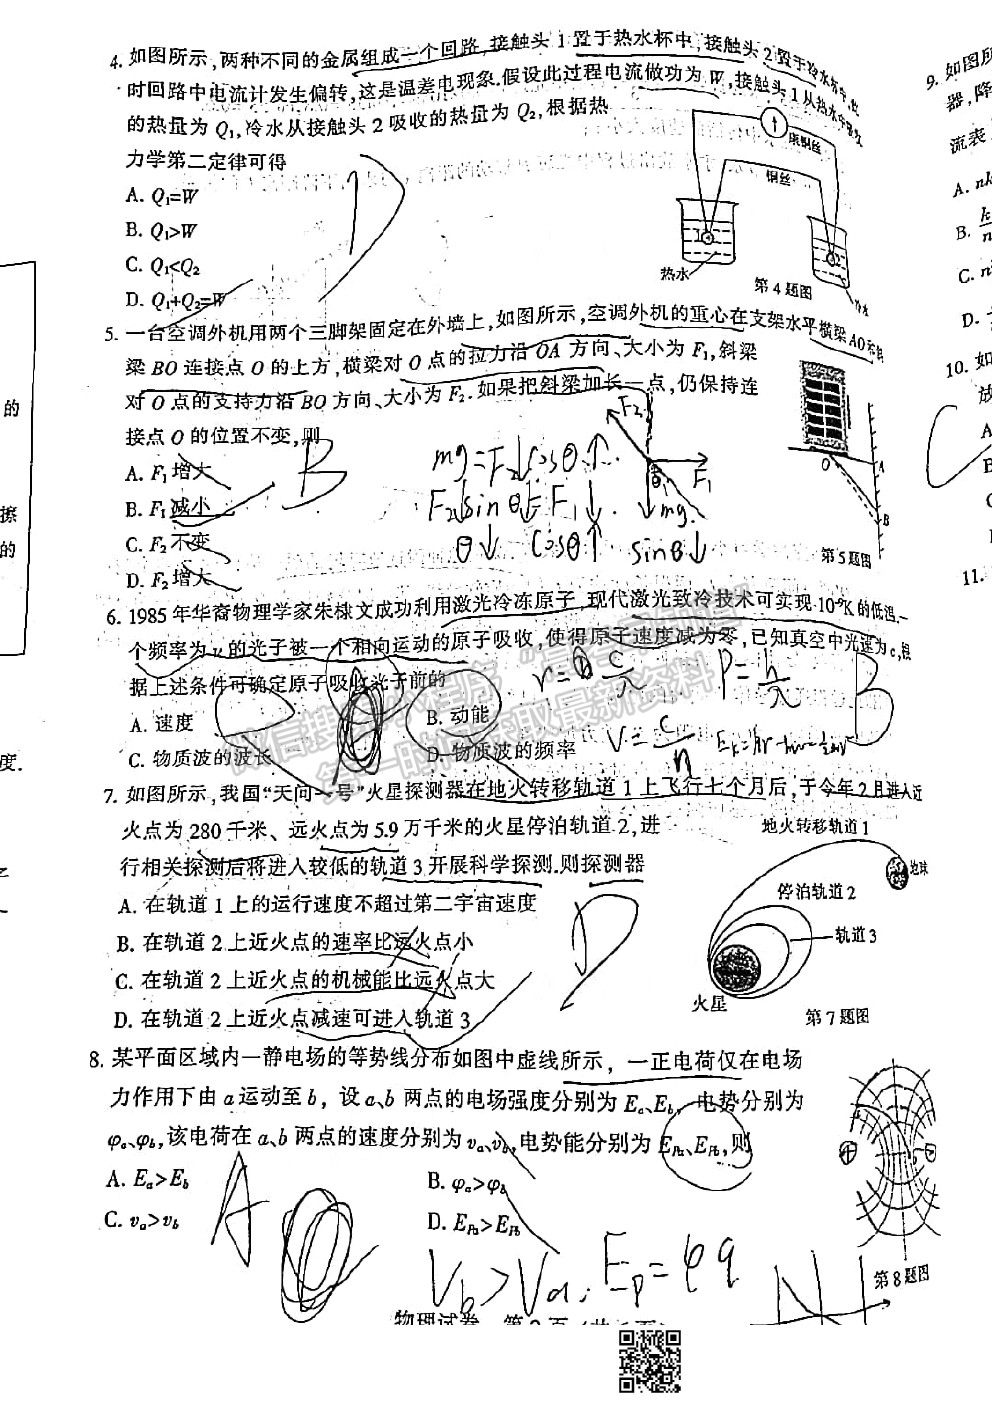 4. 如图所示,两种不同的金属组成一个回路,接触头1置于热水杯中,接触头2置于冷水杯中,此
时回路中电流计发生偏转,这是温差电现象.假设此过程电流做功为W,接触头1从热水中吸收
的热量为Q₁,冷水从接触头2吸收的热量为Q₂,根据热
力学第二定律可得
A. Q₁=W
B. Q₁>W
C. Q₁<Q₂
D. Q₁+Q₂=W
D
康铜丝
铜丝
热水
冷水
第4题图
5. 一台空调外机用两个三脚架固定在外墙上,如图所示,空调外机的重心在支架水平横梁AO和斜
梁BO连接点O的上方,横梁对O点的拉力沿OA方向、大小为F₁,斜梁
对O点的支持力沿BO方向、大小为F₂.如果把斜梁加长一点,仍保持连
接点O的位置不变,则
A. F₁增大
B. F₁减小
C. F₂不变
D. F₂增大
B
mg=F₂↓cosθ↑
F₂↓sinθ↓=F₁↓
θ↓ cosθ↑ sinθ↓
F₂
F₁
mg
O
A
B
第5题图
6. 1985年华裔物理学家朱棣文成功利用激光冷冻原子,现代激光致冷技术可实现
K的低温.一
个频率为ν的光子被一个相向运动的原子吸收,使得原子速度减为零,已知真空中光速为c,根
据上述条件可确定原子吸收光子前的
A. 速度
B. 动能
C. 物质波的波长
D. 物质波的频率
P=h/λ
B
微信搜
7. 如图所示,我国“天问一号”火星探测器在地火转移轨道1上飞行七个月后,于今年2月进入近
火点为280千米、远火点为5.9万千米的火星停泊轨道2,进
行相关探测后将进入较低的轨道3开展科学探测.则探测器
A. 在轨道1上的运行速度不超过第二宇宙速度
B. 在轨道2上近火点的速率比远火点小
C. 在轨道2上近火点的机械能比远火点大
D. 在轨道2上近火点减速可进入轨道3
D
地火转移轨道1
地球
停泊轨道2
轨道3
火星
第7题图
8. 某平面区域内一静电场的等势线分布如图中虚线所示，一正电荷仅在电场
力作用下由a运动至b，设a、b两点的电场强度分别为Eₐ、E_b，电势分别为
φₐ、φ_b,该电荷在a、b两点的速度分别为vₐ、v_b,电势能分别为E_Pa、E_Pb,则
A. Eₐ>E_b
B. φₐ>φ_b
C. vₐ>v_b
D. E_Pa>E_Pb
A
V_b>Vₐ
E_p=φq
第8题图
9. 如图所
器,降
流表
A. nk
B. k/n
C. n
D.
10. 如
放
A
B
C
11.
的
擦
的
度.